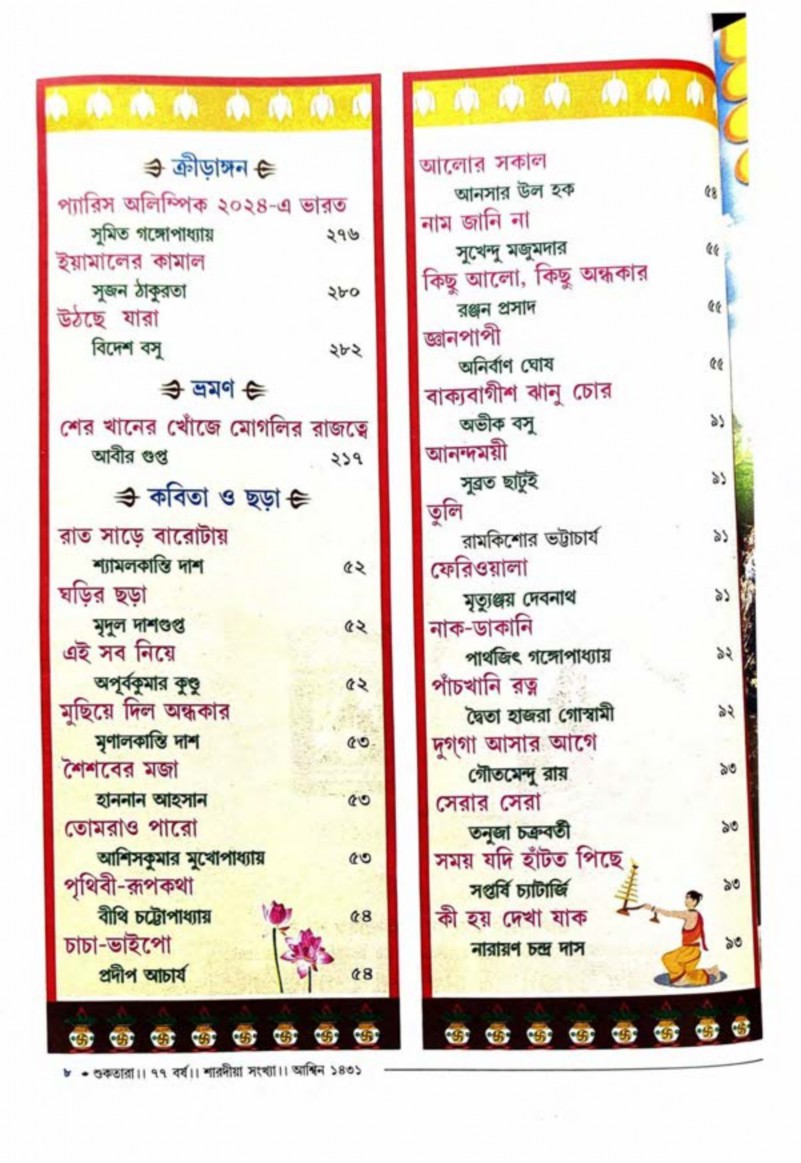 ক্রীড়াঙ্গন
প্যারিস অলিম্পিক ২০২৪-এ ভারত
সুমিত গঙ্গোপাধ্যায় ২৭৬
ইয়ামালের কামাল
সুজন ঠাকুরতা ২৮০
উঠছে যারা
বিদেশ বসু ২৮২
ভ্রমণ
শের খানের খোঁজে মোগলির রাজত্বে
আবীর গুপ্ত ২১৭
কবিতা ও ছড়া
রাত সাড়ে বারোটায়
শ্যামলকান্তি দাশ ৫২
ঘড়ির ছড়া
মৃদুল দাশগুপ্ত ৫২
এই সব নিয়ে
অপূর্বকুমার কুণ্ডু ৫২
মুছিয়ে দিল অন্ধকার
মৃণালকান্তি দাশ ৫৩
শৈশবের মজা
হাননান আহসান ৫৩
তোমরাও পারো
আশিসকুমার মুখোপাধ্যায় ৫৩
পৃথিবী-রূপকথা
বীথি চট্টোপাধ্যায় ৫৪
চাচা-ভাইপো
প্রদীপ আচার্য ৫৪
আলোর সকাল
আনসার উল হক ৫৪
নাম জানি না
সুখেন্দু মজুমদার ৫৫
কিছু আলো, কিছু অন্ধকার
রঞ্জন প্রসাদ ৫৫
জ্ঞানপাপী
অনির্বাণ ঘোষ ৫৫
বাক্যবাগীশ ঝানু চোর
অভীক বসু ৯১
আনন্দময়ী
সুব্রত ছাটুই ৯১
তুলি
রামকিশোর ভট্টাচার্য ৯১
ফেরিওয়ালা
মৃত্যুঞ্জয় দেবনাথ ৯১
নাক-ডাকানি
পার্থজিৎ গঙ্গোপাধ্যায় ৯২
পাঁচখানি রত্ন
দ্বৈতা হাজরা গোস্বামী ৯২
দুগ্‌গা আসার আগে
গৌতমেন্দু রায় ৯৩
সেরার সেরা
তনুজা চক্রবর্তী ৯৩
সময় যদি হাঁটত পিছে
সপ্তর্ষি চ্যাটার্জি ৯৩
কী হয় দেখা যাক
নারায়ণ চন্দ্র দাস ৯৩
৮ • শুকতারা।। ৭৭ বর্ষ।। শারদীয়া সংখ্যা।। আশ্বিন ১৪৩১